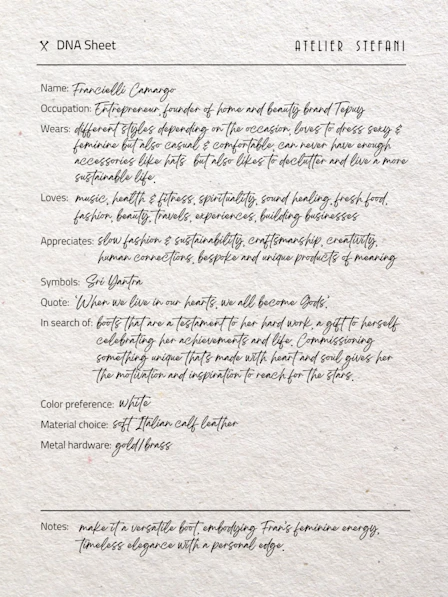 DNA Sheet
ATELIER STEFANI
Name: Francielli Camargo
Occupation: Entrepreneur, founder of home and beauty brand Tepuy
Wears: different styles depending on the occasion, loves to dress sexy &
feminine but also casual & comfortable, can never have enough
accessories like hats but also likes to declutter and live a more
sustainable life.
Loves: music, health & fitness, spirituality, sound healing, fresh food,
fashion, beauty, travels, experiences, building businesses
Appreciates: slow fashion & sustainability, craftsmanship, creativity,
human connections, bespoke and unique products of meaning
Symbols: Sri Yantra
Quote: 'When we live in our hearts, we all become Gods.'
In search of: boots that are a testament to her hard work, a gift to herself
celebrating her achievements and life. Commissioning
something unique that's made with heart and soul gives her
the motivation and inspiration to reach for the stars.
Color preference: white
Material choice: soft Italian calf leather
Metal hardware: gold/brass
Notes: make it a versatile boot, embodying Fran's feminine energy,
timeless elegance with a personal edge.